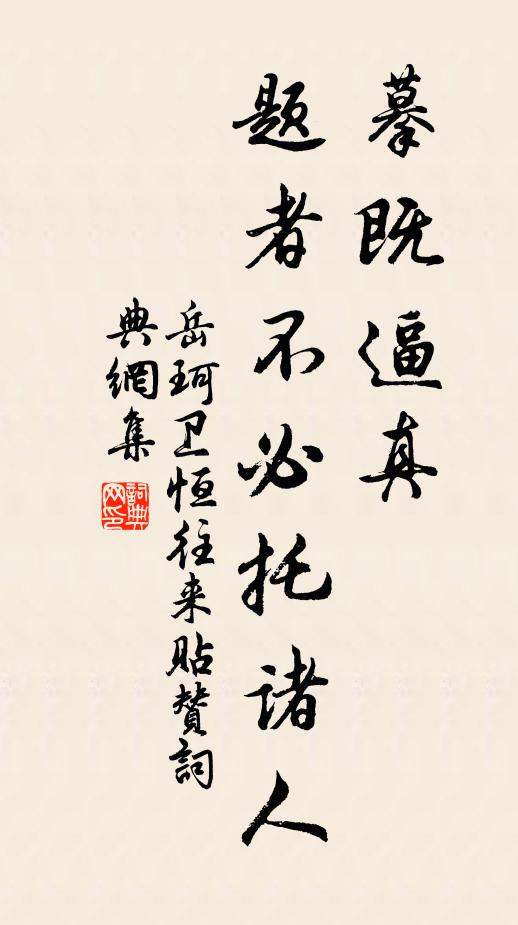 摹既逼真
题者不必托诸人
岳珂卫恒往来贴赞词
典網集
詞典
网印